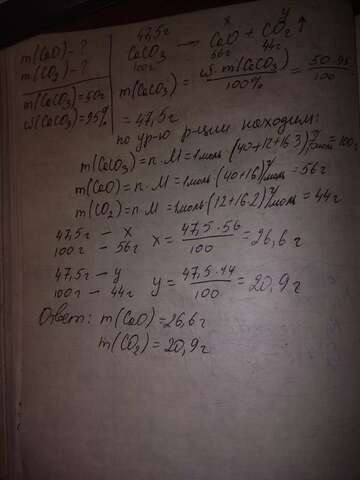 m(CaO) - ?
m(CO₂) - ?
m(CaCO₃) = 50г
ω(CaCO₃) = 95%
47,5г x y
CaCO₃ → CaO + CO₂↑
100г 56г 44г
m(CaCO₃) = ω · m(CaCO₃) / 100% = 50·95 / 100
= 47,5г
по ур-ю р-ции находим:
m(CaCO₃) = n·M = 1моль·(40+12+16·3) г/моль = 100г
m(CaO) = n·M = 1моль·(40+16) г/моль = 56г
m(CO₂) = n·M = 1моль·(12+16·2) г/моль = 44г
47,5г — x
100г — 56г x = 47,5·56 / 100 = 26,6г
47,5г — y
100г — 44г y = 47,5·44 / 100 = 20,9г
Ответ: m(CaO) = 26,6г
m(CO₂) = 20,9г